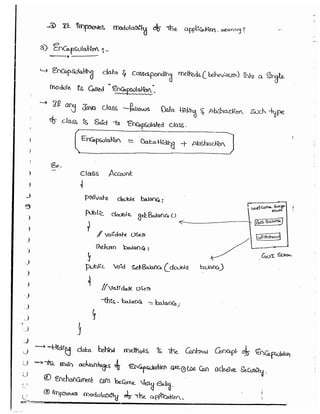 → It improves modularity of the application.
3) Encapsulation :-
→ Encapsulating data & corresponding methods (behaviour) into a single
module is called "Encapsulation".
→ If any java class follows Data Hiding & Abstraction such type
of class is said to Encapsulated class.
Encapsulation = Data Hiding + Abstraction
Ex:
class Account
{
private double balance;
public double getBalance()
{
// validate user
return balance;
}
public void setBalance(double balance)
{
// validate user
this.balance = balance;
}
}
GUI Screen
→ Hiding data behind methods is the Central Concept of Encapsulation
→ The main advantages of Encapsulation are ① we can achieve security.
② Enhancement can become very easy.
③ Improves modularity of the application.